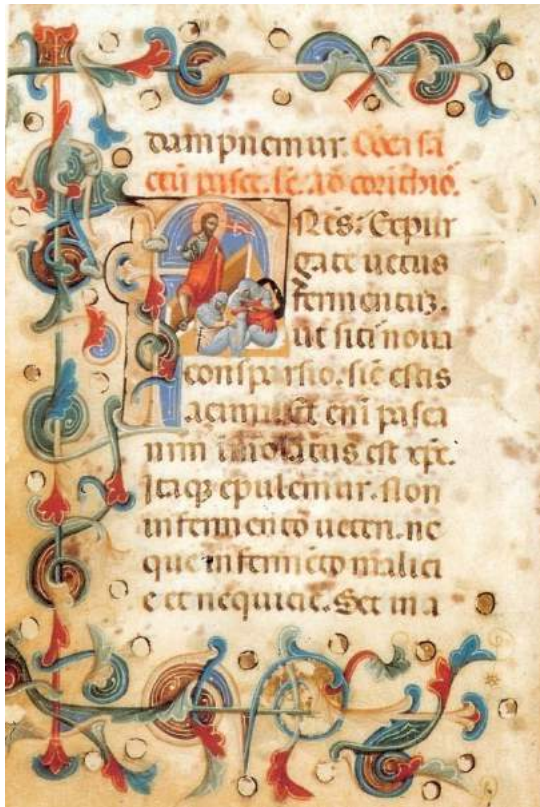 dampnemur.
Fres: Expur
gate uetus
fermentuz.
ut siti noua
conspersio. sic estis
acimi. Et eni pasca
nrm imolatus est xpc.
Itaqz epulemur. Non
in fermento ueteri. ne
que in fermeto malici
e et nequicie. Set in a